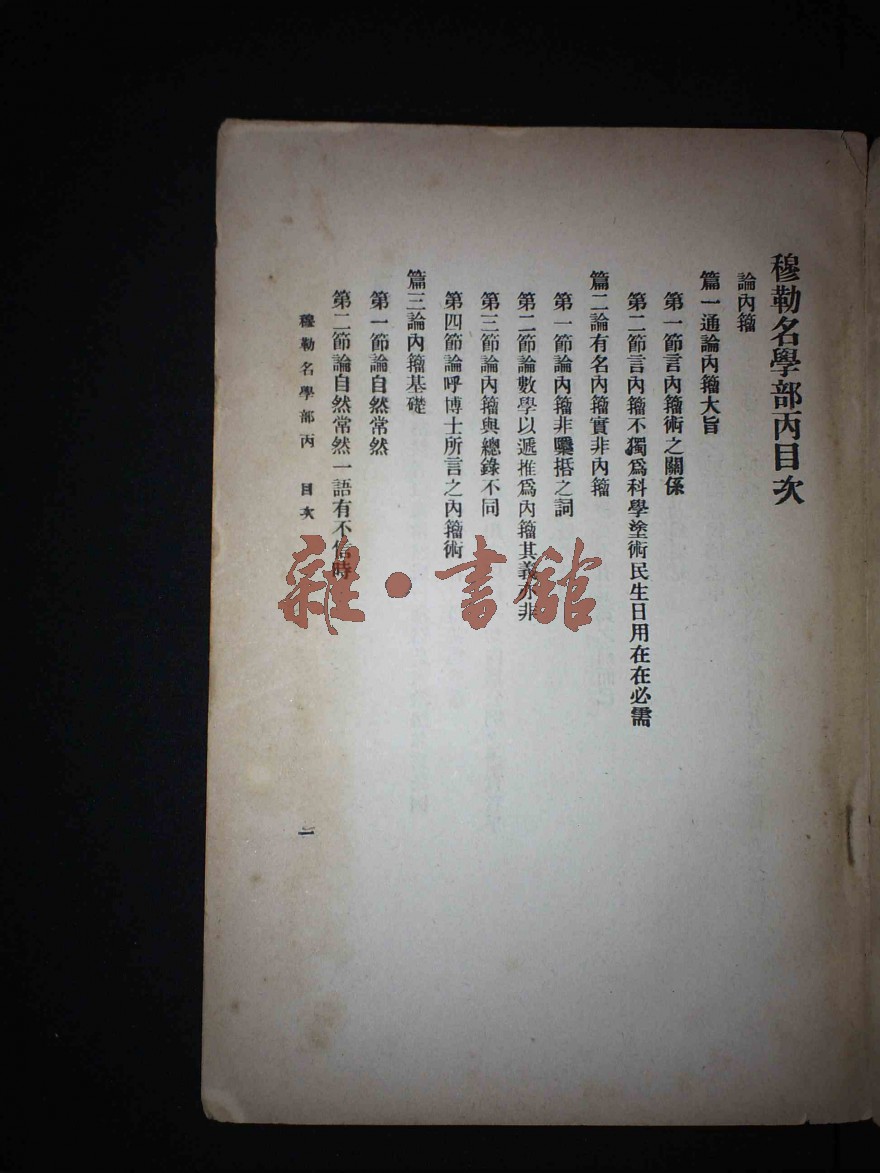 穆勒名學部丙目次
論內籀
篇一通論內籀大旨
第一節言內籀術之關係
第二節言內籀不獨爲科學塗術民生日用在在必需
篇二論有名內籀實非內籀
第一節論內籀非檃括之詞
第二節論數學以遞推爲內籀其義亦非
第三節論內籀與總錄不同
第四節論呼博士所言之內籀術
篇三論內籀基礎
第一節論自然常然
第二節論自然常然一語有不信時
穆勒名學部丙 目次 二
雜·書館